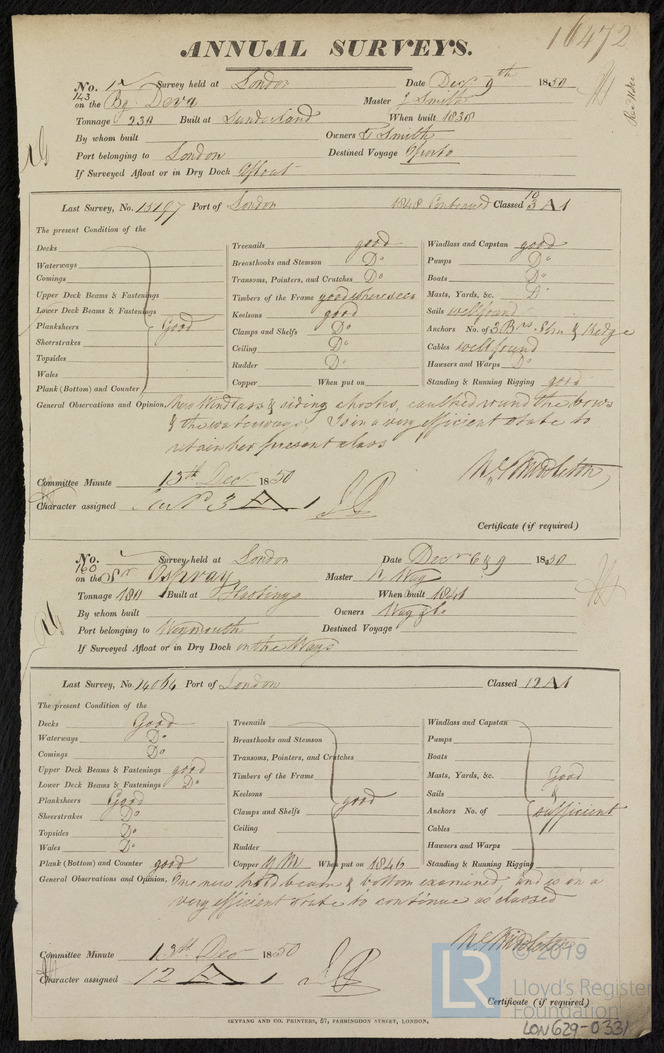 16472
ANNUAL SURVEYS.
No. 143 Survey held at London Date Decr 9th 1850
on the Bg. Deva Master J Smith
Tonnage 230 Built at Sunderland When built 1838
By whom built Owners T. Smith
Port belonging to London Destined Voyage Oporto
If Surveyed Afloat or in Dry Dock Afloat
Last Survey, No. 15197 Port of London 1848 Continued Classed 10/3 A 1
The present Condition of the
Decks
Waterways
Comings
Upper Deck Beams & Fastenings
Lower Deck Beams & Fastenings
Planksheers Good
Sheerstrakes
Topsides
Wales
Plank (Bottom) and Counter
Treenails good
Breasthooks and Stemson Do
Transoms, Pointers, and Crutches Do
Timbers of the Frame good where seen
Keelsons good
Clamps and Shelfs Do
Ceiling Do
Rudder Do
Copper When put on
Windlass and Capstan good
Pumps Do
Boats Do
Masts, Yards, &c. Do
Sails well found
Anchors No. of 3 Brs Strm & Kedge
Cables well found
Hawsers and Warps Do
Standing & Running Rigging good
General Observations and Opinion, New Windlass & riding chocks, caulked round the bows
& the waterways. Is in a very efficient state to
retain her present class
Committee Minute 13th Dec 1850
Character assigned 3 A 1
Certificate (if required)
No. 160 Survey held at London Date Decr 6 & 9 1850
on the Sr Ospray Master Way
Tonnage 180 Built at Hastings When built 1846
By whom built Owners Way & Co
Port belonging to Weymouth Destined Voyage
If Surveyed Afloat or in Dry Dock on the Ways
Last Survey, No. 14064 Port of London Classed 12 A 1
The present Condition of the
Decks Good
Waterways Do
Comings Do
Upper Deck Beams & Fastenings good
Lower Deck Beams & Fastenings Do
Planksheers Good
Sheerstrakes Do
Topsides Do
Wales Do
Plank (Bottom) and Counter good
Treenails
Breasthooks and Stemson
Transoms, Pointers, and Crutches
Timbers of the Frame
Keelsons good
Clamps and Shelfs
Ceiling
Rudder
Copper Y.M. When put on 1846
Windlass and Capstan
Pumps
Boats
Masts, Yards, &c. Good
Sails &
Anchors No. of sufficient
Cables
Hawsers and Warps
Standing & Running Rigging
General Observations and Opinion, One new hold beam & bottom examined, and is in a
very efficient state to continue as classed
Committee Minute 13th Dec 1850
Character assigned 12 A 1
Certificate (if required)
SEYFANG AND CO. PRINTERS, 57, FARRINGDON STREET, LONDON.
LR
© 2019
Lloyd's Register
Foundation
LON629-0331